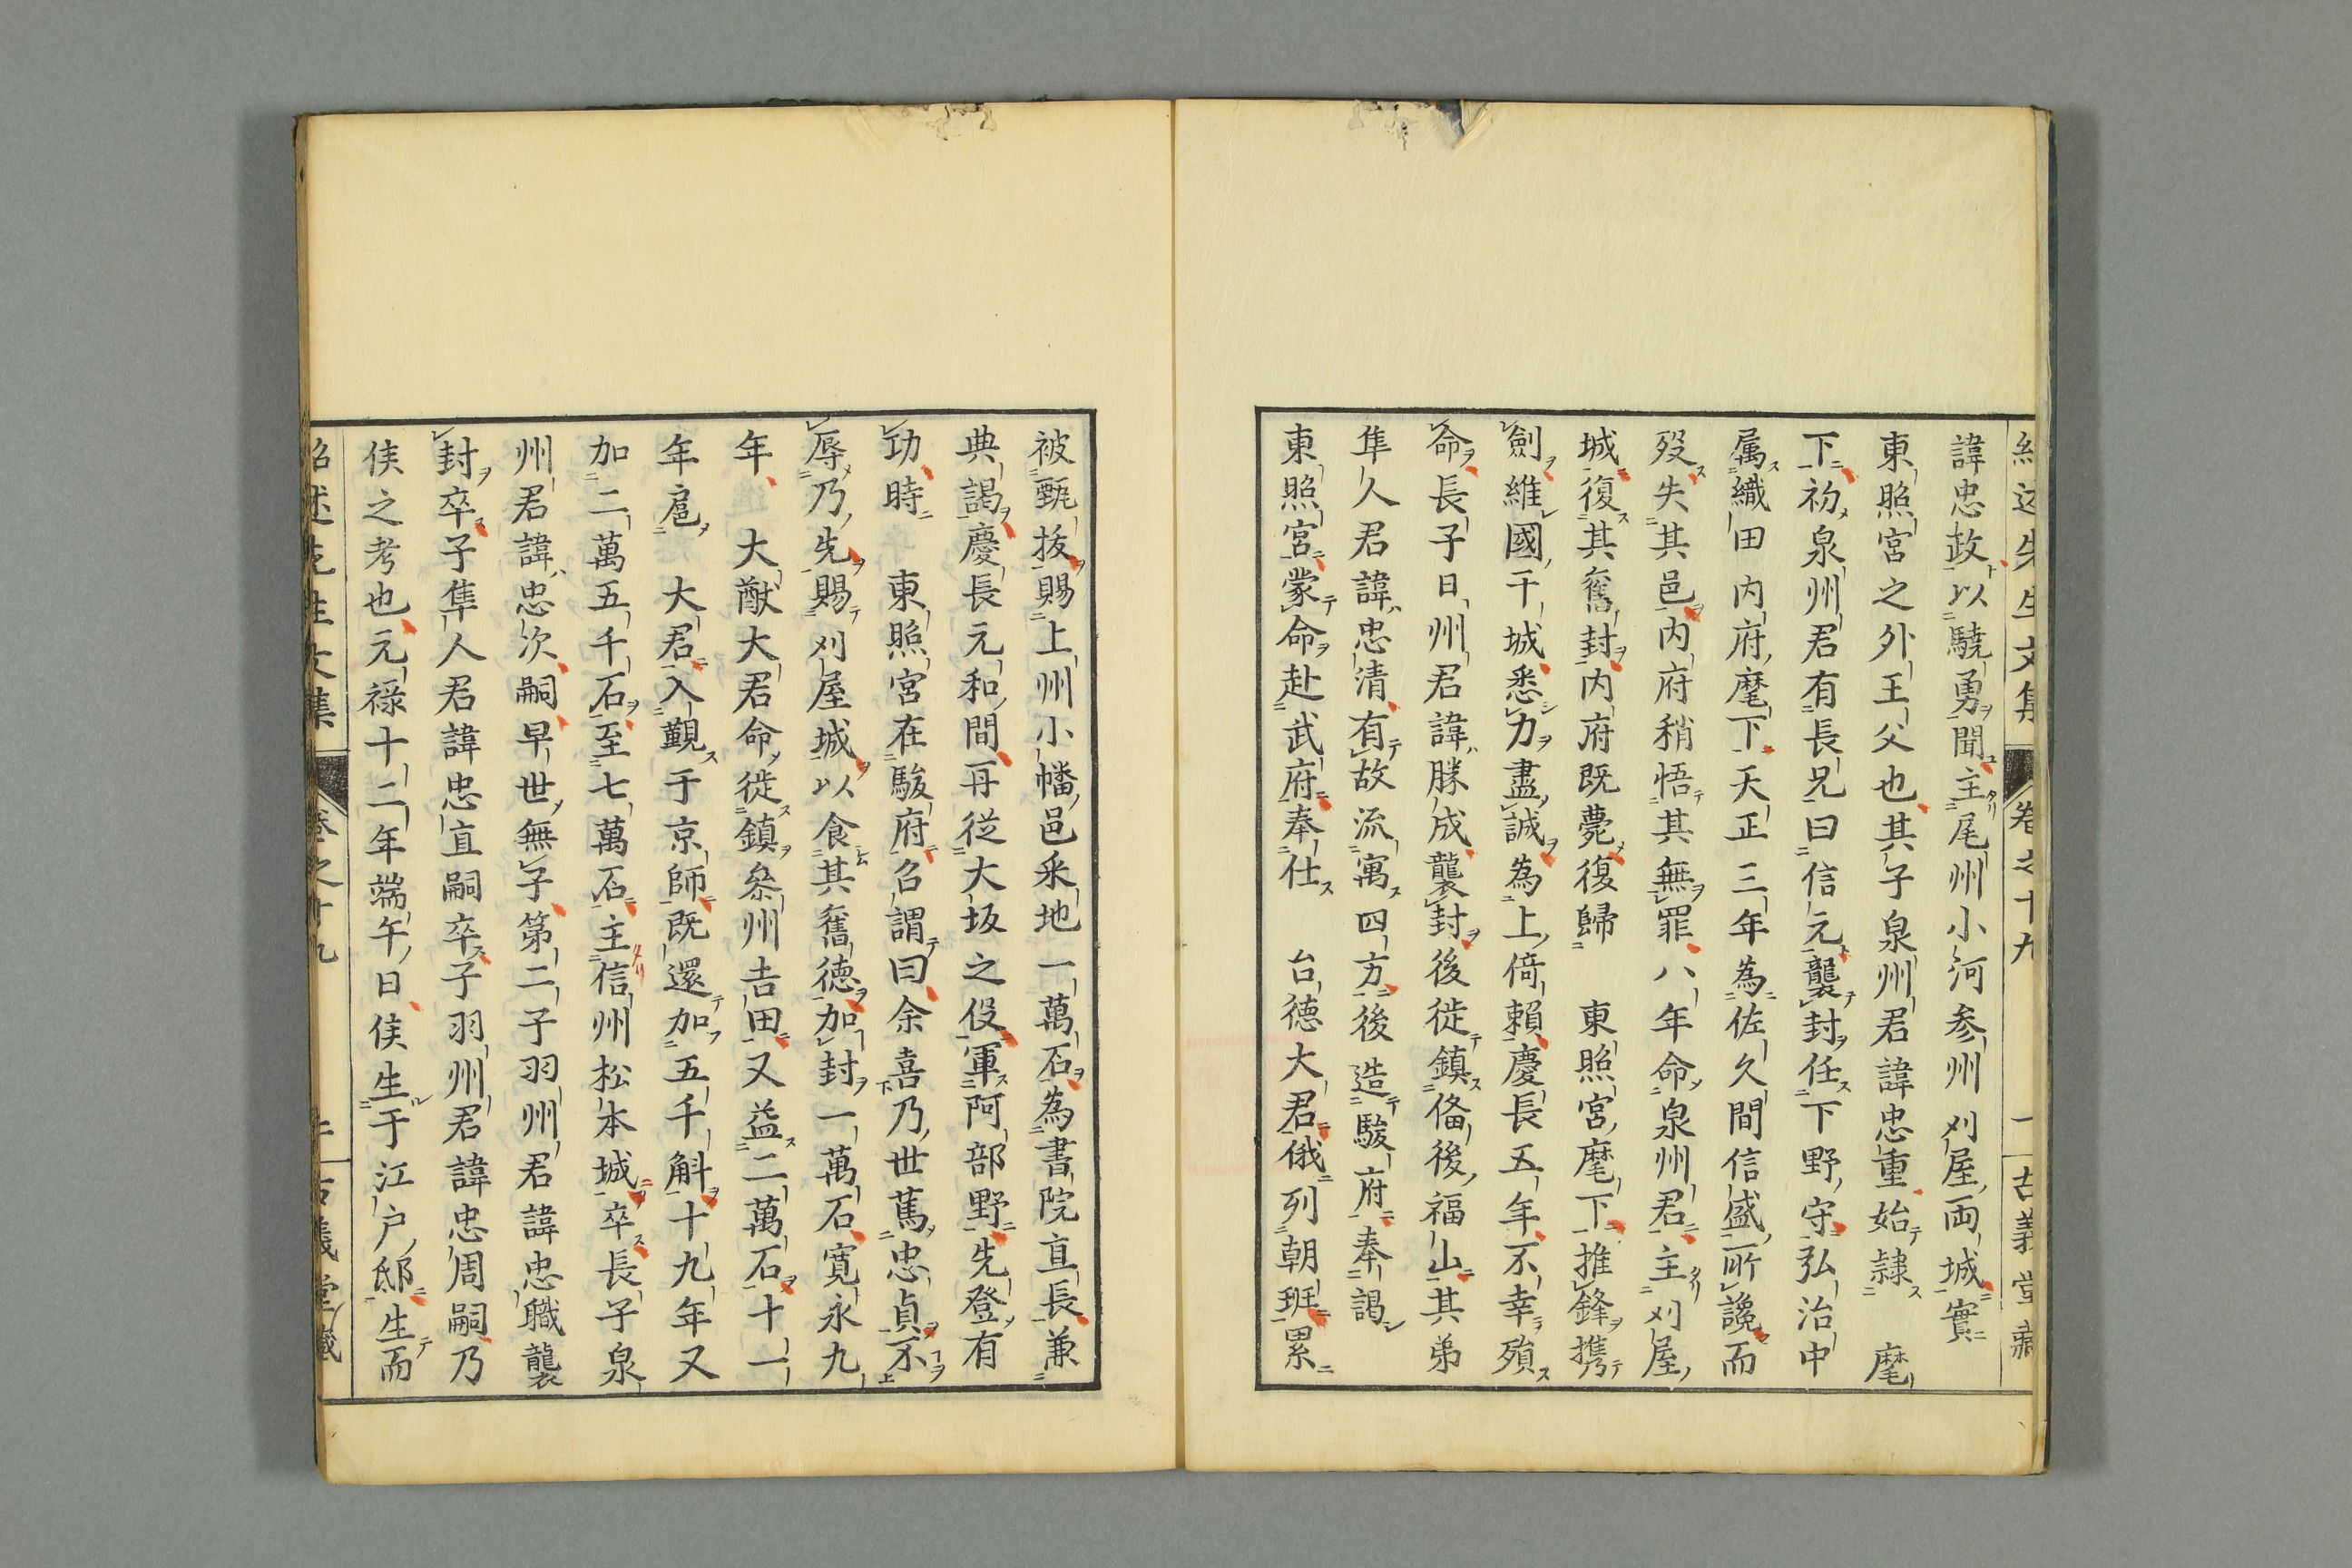 紹述先生文集 卷之十九 一 古義堂藏
諱忠政以驍勇聞主尾州小河参州刈屋両城實
東照宮之外王父也其子泉州君諱忠重始隷 麾
下初泉州君有長兄曰信元襲封任下野守弘治中
属織田内府麾下天正三年為佐久間信盛所讒而
歿失其邑内府稍悟其無罪八年命泉州君主刈屋
城復其舊封内府既薨復歸 東照宮麾下推鋒携
劍維國干城悉力盡誠為上倚頼慶長五年不幸殞
命長子日州君諱勝成襲封後徙鎮俻後福山其弟
隼人君諱忠清有故流寓四方後造駿府奉謁
東照宮蒙命赴武府奉仕 台德大君俄列朝班累
被甄抜賜上州小幡邑釆地一萬石為書院直長兼
典謁慶長元和間再從大坂之役軍阿部野先登有
功時 東照宮在駿府召謂曰余喜乃世篤忠貞不
辱乃先賜刈屋城以食其舊德加封一萬石寛永九
年 大猷大君命徙鎮叅州吉田又益二萬石十一
年扈 大君入覲于京師既還加五千斛十九年又
加二萬五千石至七萬石主信州松本城卒長子泉
州君諱忠次嗣早世無子第二子羽州君諱忠職襲
封卒子隼人君諱忠直嗣卒子羽州君諱忠周嗣乃
侯之考也元禄十二年端午日侯生于江户邸生而
紹述先生文集 卷之十九 古義堂藏